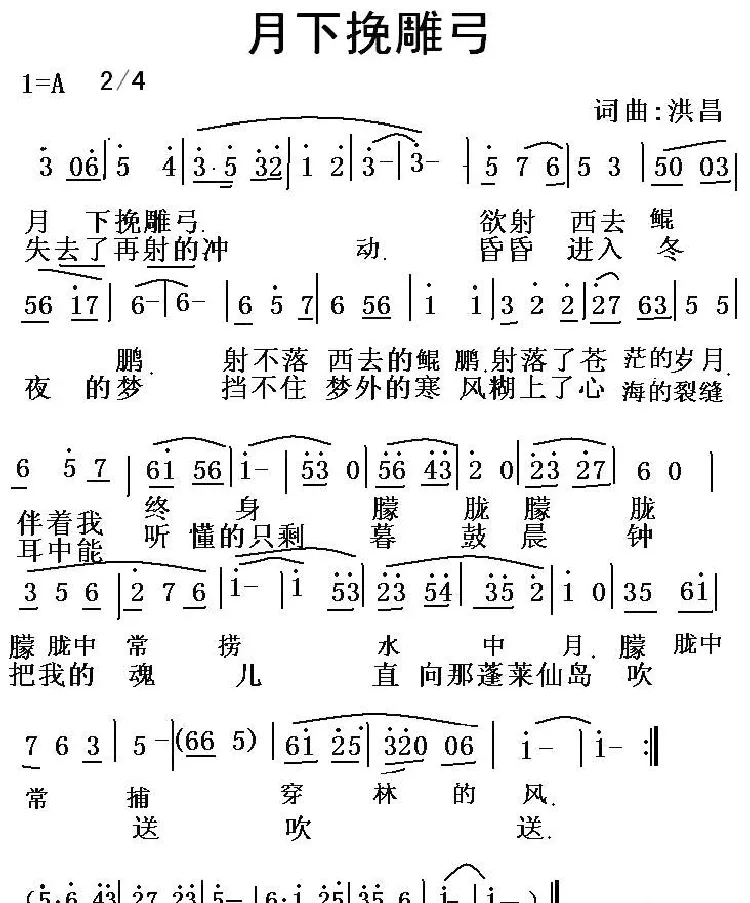 月下挽雕弓
1=A 2/4
词曲:洪昌
3 06 | 5 4 | 3·5 32 | 1 2 | 3- | 3- | 5 7 6 | 5 3 | 50 03 |
月 下挽雕弓. 欲射 西去 鲲
失去了再射的冲 动. 昏昏 进入 冬
56 17 | 6- | 6- | 6 5 7 | 6 56 | 1 1 | 3 2 2 | 27 63 | 5 5 |
鹏. 射不落 西去的鲲 鹏.射落了苍 茫的岁月.
夜 的梦 挡不住 梦外的寒 风糊上了心 海的裂缝
6 5 7 | 61 56 | 1- | 53 0 | 56 43 | 2 0 | 23 27 | 6 0 |
伴着我 终 身 朦 胧 朦 胧
耳中能 听 懂的只剩 暮 鼓 晨 钟
3 5 6 | 2 7 6 | 1- | 1 53 | 23 54 | 35 2 | 1 0 | 35 61 |
朦 胧中 常 捞 水 中 月.朦 胧中
把我的 魂 儿 直 向那蓬莱仙岛 吹
7 6 3 | 5- | (66 5) | 61 25 | 320 06 | 1- | 1- :‖
常 捕 穿 林 的 风.
送 吹 送.
(5·6 43 | 27 23 | 5- | 6·1 25 | 35 6 | 1- | 1- ) ‖